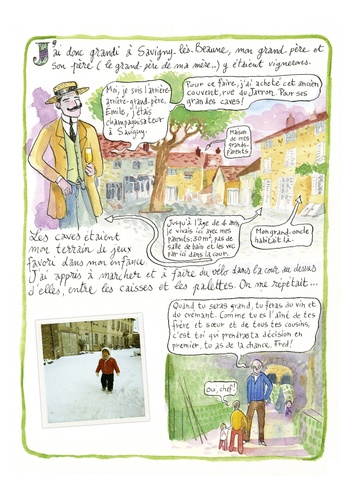 J'ai donc grandi à Savigny-lès-Beaune, mon grand-père et
son père (le grand-père de ma mère...) y étaient vignerons.
Moi, je suis l'arrière-
arrière-grand-père,
Émile, j'étais
champagnisateur
à Savigny.
Pour ce faire, j'ai acheté cet ancien
couvent, rue du Jarron. Pour ses
grandes caves!
Maison
de mes
grands-
parents
Jusqu'à l'âge de 4 ans,
je vivais ici avec mes
parents: 30 m², pas de
salle de bain et les wc
par ici dans la cour.
Mon grand-oncle
habitait là.
Les caves étaient
mon terrain de jeux
favori dans mon enfance.
J'ai appris à marcher et à faire du vélo dans la cour au dessus
d'elles, entre les caisses et les palettes. On me répétait...
Quand tu seras grand, tu feras du vin et
du crémant. Comme tu es l'aîné de tes
frère et sœur et de tous tes cousins,
c'est toi qui prendras ta décision en
premier, tu as de la chance, Fred!
Oui, chef!